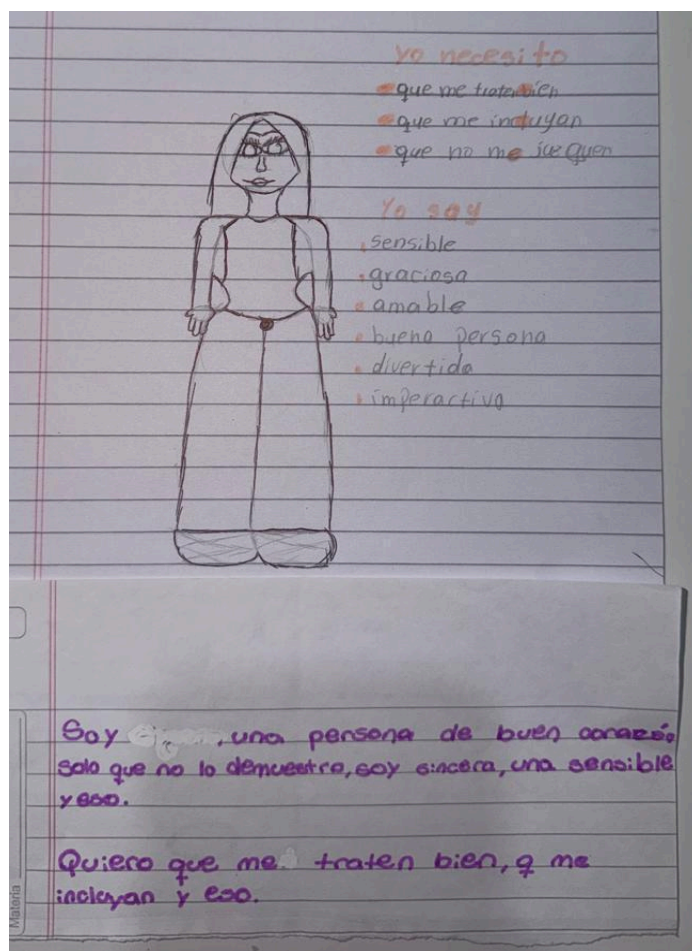 yo necesito
que me traten bien
que me incluyan
que no me juzguen
Yo soy
sensible
graciosa
amable
buena persona
divertida
imperactiva
Soy , una persona de buen corazón
solo que no lo demuestro, soy sincera, una sensible
y eso.
Quiero que me traten bien, q me
incluyan y eso.
Materia